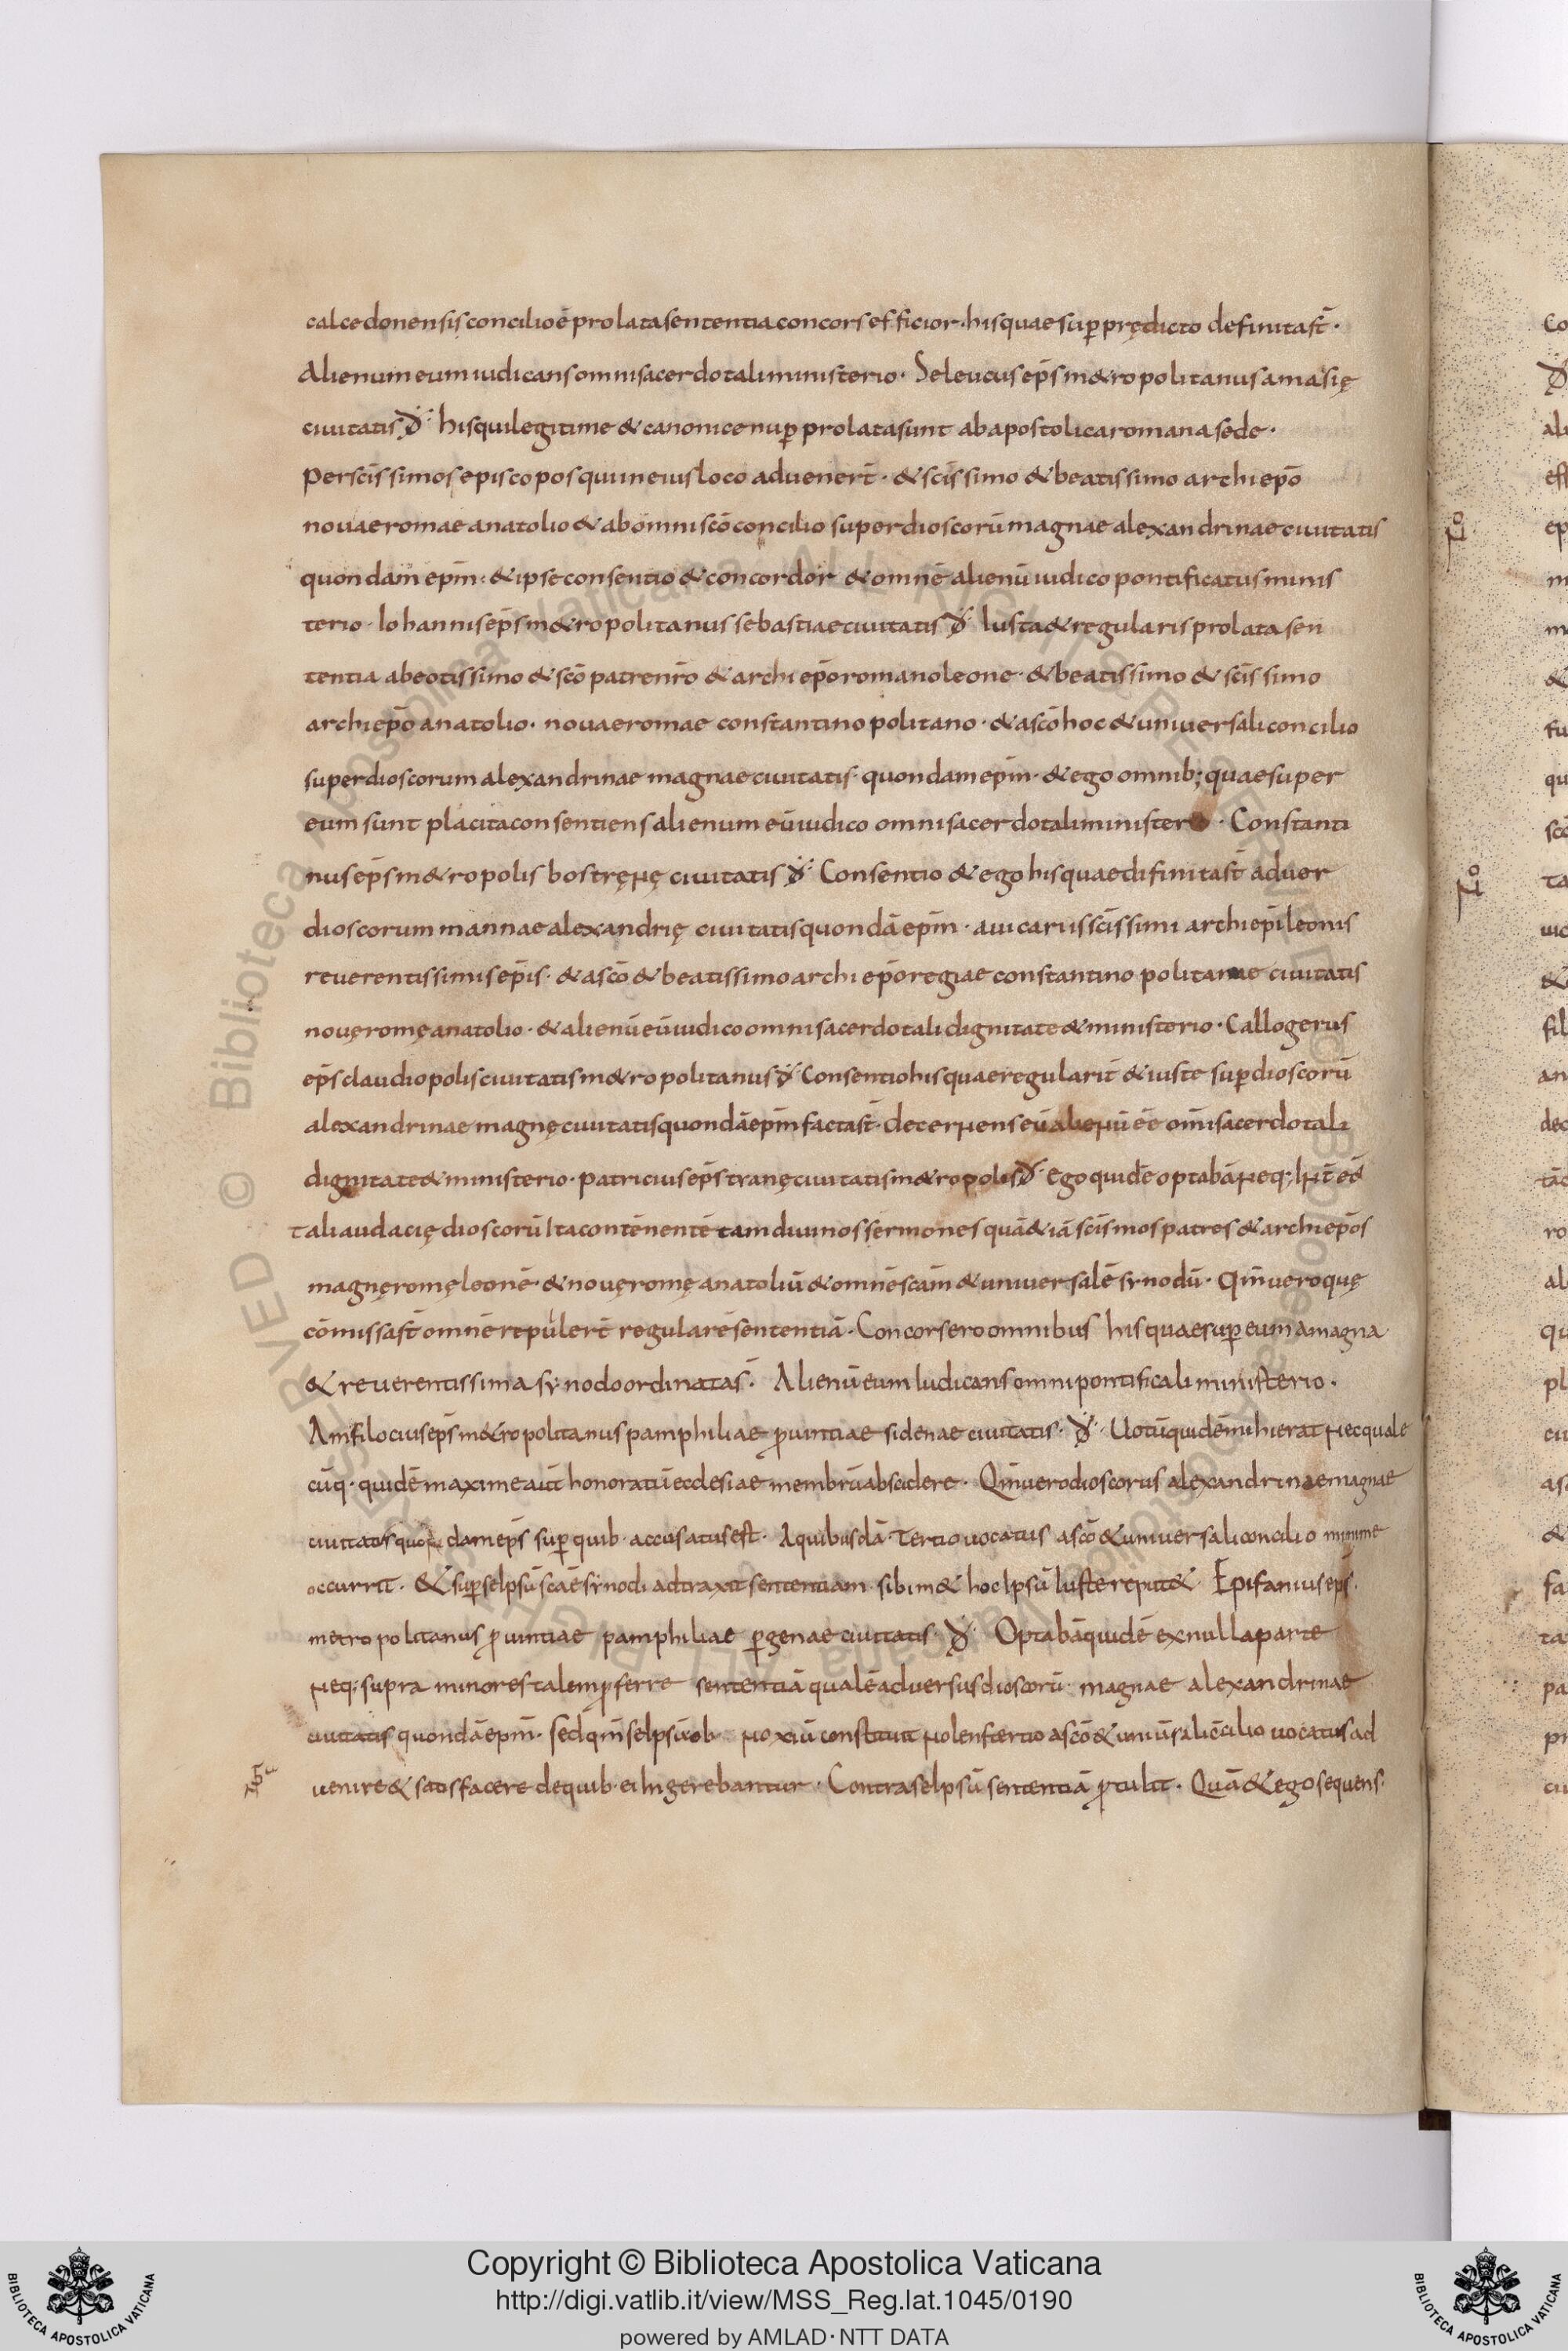 calcedonensis concilio ē prolata sententia concors efficior· his quae sup prędicto definita st̄·
Alienum eum iudicans omni sacerdotali ministerio· Seleucus ep̄s m&ropolitanus amasię
ciuitatis d̄· his qui legitime & canonice nup prolata sunt ab apostolica romana sede·
Per sc̄issimos episcopos qui in eius loco aduener̄t· & sc̄issimo & beatissimo archiep̄o
nouae romae anatolio & ab omni sc̄o concilio super dioscorū magnae alexandrinae ciuitatis
quondam ep̄m· & ipse consentio & concordor & omnē alienū iudico pontificatus minis
terio· Iohannis ep̄s m&ropolitanus sebastiae ciuitatis d̄· Iusta & regularis prolata sen
tentia a beatissimo & sc̄o patre nr̄o & archiep̄o romano leone· & beatissimo & sc̄issimo
archiep̄o anatolio· nouae romae constantinopolitano· & a sc̄o hoc & uniuersali concilio
super dioscorum alexandrinae magnae ciuitatis· quondam ep̄m· & ego omnib; quae super
eum sunt placita consentiens alienum eū iudico omni sacerdotali minister· Constanti
nus ep̄s m&ropolis bostręnę ciuitatis d̄· Consentio & ego his quae difinita st̄ aduer
dioscorum mannae alexandrię ciuitatis quondā ep̄m· a uicariis sc̄issimi archiep̄i leonis
reuerentissimis ep̄is· & a sc̄o & beatissimo archiep̄o regiae constantinopolitanae ciuitatis
nouę romę anatolio· & alienū eū iudico omni sacerdotali dignitate & ministerio· Callogerus
ep̄s claudiopolis ciuitatis m&ropolitanus d̄· Consentio his quae regularit̄ & iuste sup dioscorū
alexandrinae magnę ciuitatis quondā ep̄m facta st̄· decernens eū alienū ēē om̄i sacerdotali
dignitate & ministerio· patricius ep̄s tranę ciuitatis m&ropolis d̄· Ego quidē optabā neq;
tali audacię dioscorū Ita contēnentē tam diuinos sermones quā & iā sc̄ismos patres & archiep̄os
magnę romę leonē· & nouę romę anatoliū & omnē scām & uniuersalē synodū· Qm̄ uero quę
cōmissa st̄ omnē repuler̄t regularē sententiā· Concors ero omnibus his quae sup eum a magna
& reuerentissima synodo ordinata s̄· Alienū eum Iudicans omni pontificali ministerio·
Amfilocius ep̄s m&ropolitanus pamphiliae puintiae sidenae ciuitatis· d̄· Uotū quidē mihi erat nec quale
cūq· quidē maxime aut̄ honoratū ecclesiae membrū abscidere· Qm̄ uero dioscorus alexandrinae magnae
ciuitatis quondam ep̄s sup quib· accusatus est· A quibusdā· Tertio uocatus a sc̄o & uniuersali concilio minime
occurrit· & sup seIpsū scāe synodi adtraxit sententiam· sibim& hoc Ipsū Iuste reput&· Epifanius ep̄s·
metropolitanus puintiae pamphiliae pgenae ciuitatis· d̄· Optabā quidē ex nulla parte
neq; supra minores talem pferre sententiā qualē aduersus dioscorū· magnae alexandrinae
ciuitatis quondā ep̄m· sed qm̄ seIpsū ob noxiū constituit nolens tertio a sc̄o & uniūsali c̄cilio uocatus ad
uenire & satisfacere de quib· ei Ingerebantur· Contra seIpsū sententiā ptulit· Quā & ego sequens·